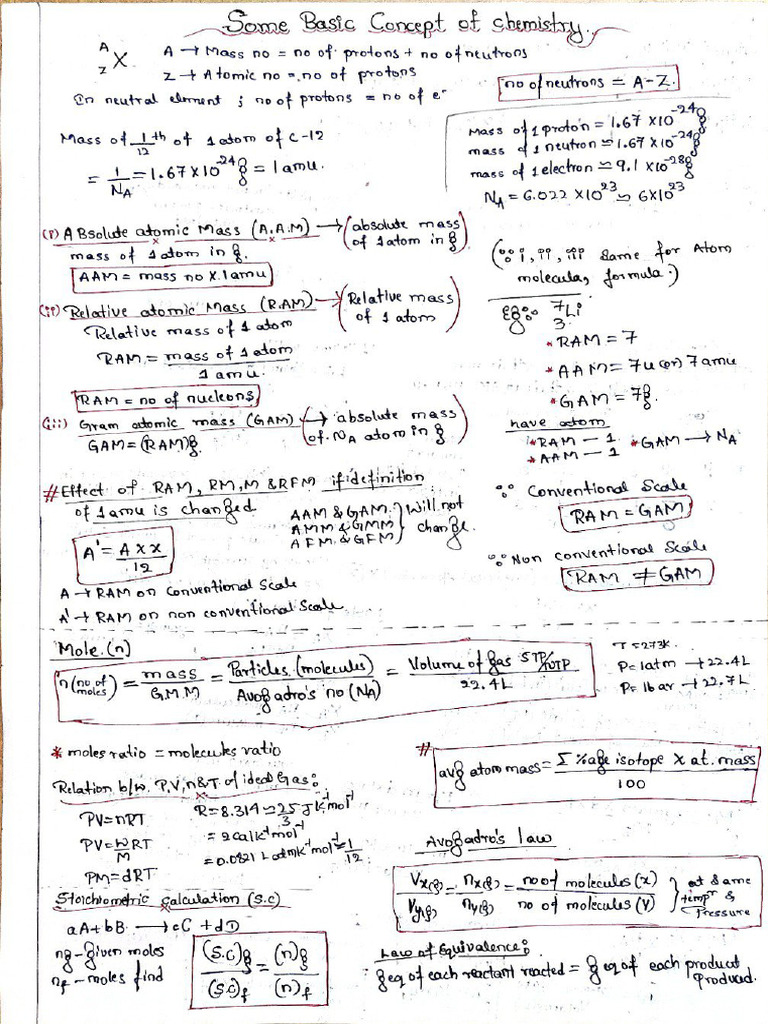 Some Basic Concept of chemistry.
A
Z X
A → Mass no = no of protons + no of neutrons
Z → Atomic no = no of protons
no of neutrons = A-Z.
In neutral element ; no of protons = no of e⁻
Mass of 1/12 th of 1 atom of C-12
= 1/N_A = 1.67 X 10⁻²⁴ g = 1 amu.
Mass of 1 proton = 1.67 X10⁻²⁴ g
mass of 1 neutron ≃ 1.67 X10⁻²⁴ g
mass of 1 electron ≃ 9.1 X10⁻²⁸ g
N_A = 6.022 X10²³ ≃ 6X10²³
(i) ABsolute atomic Mass (A.A.M) → (absolute mass of 1 atom in g)
mass of 1 atom in g.
AAM = mass no X 1 amu
(ii) Relative atomic Mass (R.AM) → (Relative mass of 1 atom)
Relative mass of 1 atom
RAM = mass of 1 atom / 1 amu
RAM = no of nucleons
(iii) Gram atomic mass (GAM) (→ absolute mass of N_A atom in g)
GAM = (RAM)g
(∵ i, ii, iii same for Atom
molecula, formula.)
Eg:- ⁷₃Li
* RAM = 7
* AAM = 7u (or) 7 amu
* GAM = 7g.
have atom
* RAM - 1 * GAM → N_A
* AAM - 1
# Effect of RAM, RM,M & RFM if definition
of 1 amu is changed
AAM & GAM
AMM & GMM
AFM & GFM } Will not change.
A' = A X x / 12
A → RAM on conventional Scale
A' → RAM on non conventional Scale
Conventional Scale
RAM = GAM
Non conventional Scale
RAM ≠ GAM
Mole.(n)
n (no of moles) = mass / G.M.M = Particles (molecules) / Avogadro's no (NA) = Volume of gas STP/NTP / 22.4L
T = 273k.
P = 1atm → 22.4L
P = 1bar → 22.7L
* moles ratio = molecules ratio
# avg atom mass = Σ %age isotope X at. mass / 100
Relation b/w. P,V, n & T of ideal Gas:
PV = nRT
PV = w/M RT
PM = dRT
R = 8.314 ≃ 25/3 J k⁻¹ mol⁻¹
= 2 cal k⁻¹ mol⁻¹
= 0.0821 L atm k⁻¹ mol⁻¹ = 1/12
Avogadro's law
Vx(g) / Vy(g) = nx(g) / ny(g) = no of molecules (x) / no of molecules (Y) } at same tempr & Pressure
Stoichometric calculation (S.C)
aA + bB → cC + dD
ng - given moles
nf - moles find
(S.C)g / (S.C)f = (n)g / (n)f
Law of Equivalence:
g eq of each reactant reacted = g eq of each product
Produced.